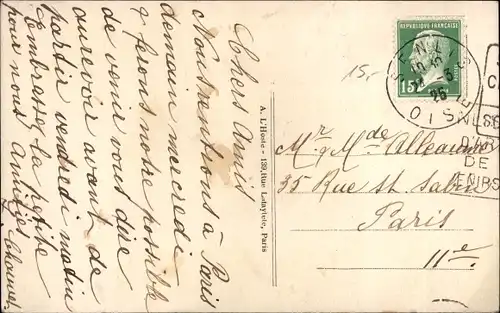 Chers Amis
Nous rentrons à Paris
demain mercredi
q ferons notre possible
de venir vous dire
au revoir avant de
partir vendredi matin
Embrassez la petite
pour nous Amitiés
A. L'Hoste - 139, Rue Lafayette, Paris
RÉPUBLIQUE FRANÇAISE
15c
SENLIS
5
25
OISE
Mr & Mde Alleaume
35 Rue St. Sabin
Paris
11e
DE